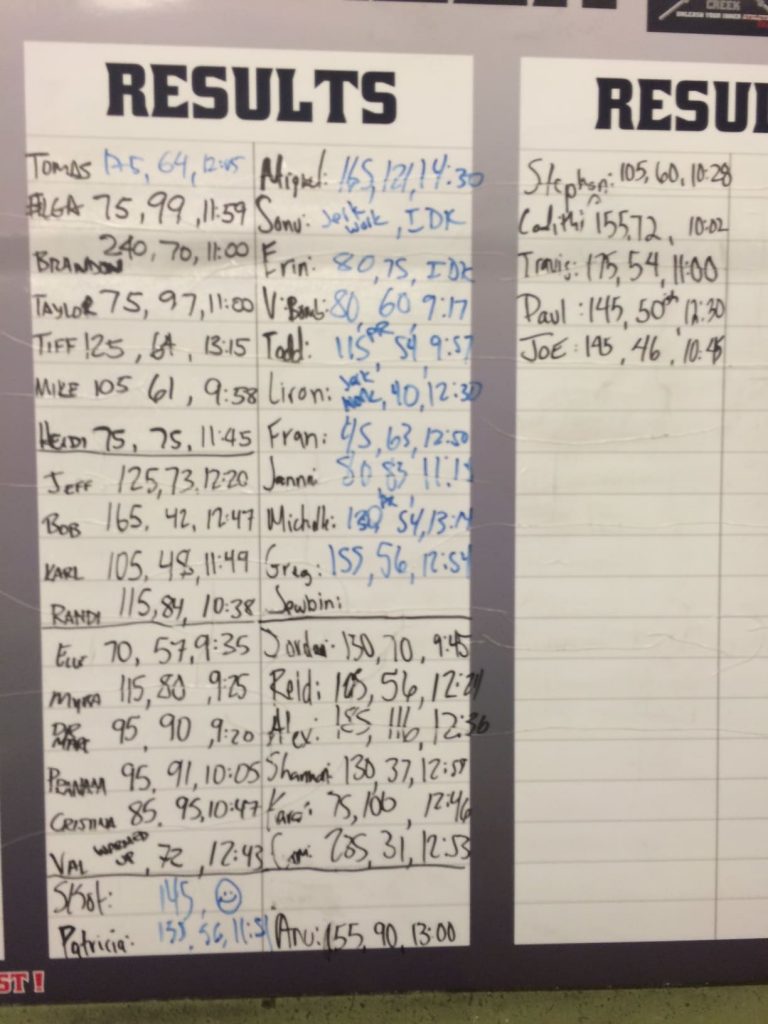 CREEK
UNLEASH YOUR INNER
RESULTS
TOMAS 175, 64, 12:45
75, 99, 11:59
BRANDON 240, 70, 11:00
TAYLOR 75, 97, 11:00
TIFF 125, 64, 13:15
MIKE 105 61, 9:58
HEIDI 75, 75, 11:45
JEFF 125, 73, 12:20
BOB 165, 42, 12:47
KARL 105, 48, 11:49
RANDI 115, 84, 10:38
70, 57, 9:35
MYRA 115, 80 9:25
DR MATT 95, 90, 9:20
95, 91, 10:05
CRISTINA 85, 95, 10:47
VAL WARMED UP, 72, 12:43
Skot: 145, ☺
Patricia: 135, 56,
Miguel: 165, 121, 14:30
Sonu: Jerk Work, IDK
Erin: 80, 75, IDK
80, 60, 9:17
Todd: 115 PR, 54, 9:57
Liron: Jerk Work, 40, 12:30
Fran: 45, 63, 12:50
80, 83,
54,
Greg: 155, 56, 12:54
Jewbin:
Jordan: 130, 70, 9:45
Reid: 56,
Alex: 185, 116, 12:36
Shannon: 130, 37,
75, 12:46
31, 12:53
Anu: 155, 90, 13:00
RESU
Stephen: 105, 60, 10:28
155, 72, 10:02
Travis: 175, 54, 11:00
Paul: 145, 50ish, 12:30
JOE: 46, 10:45
ST!